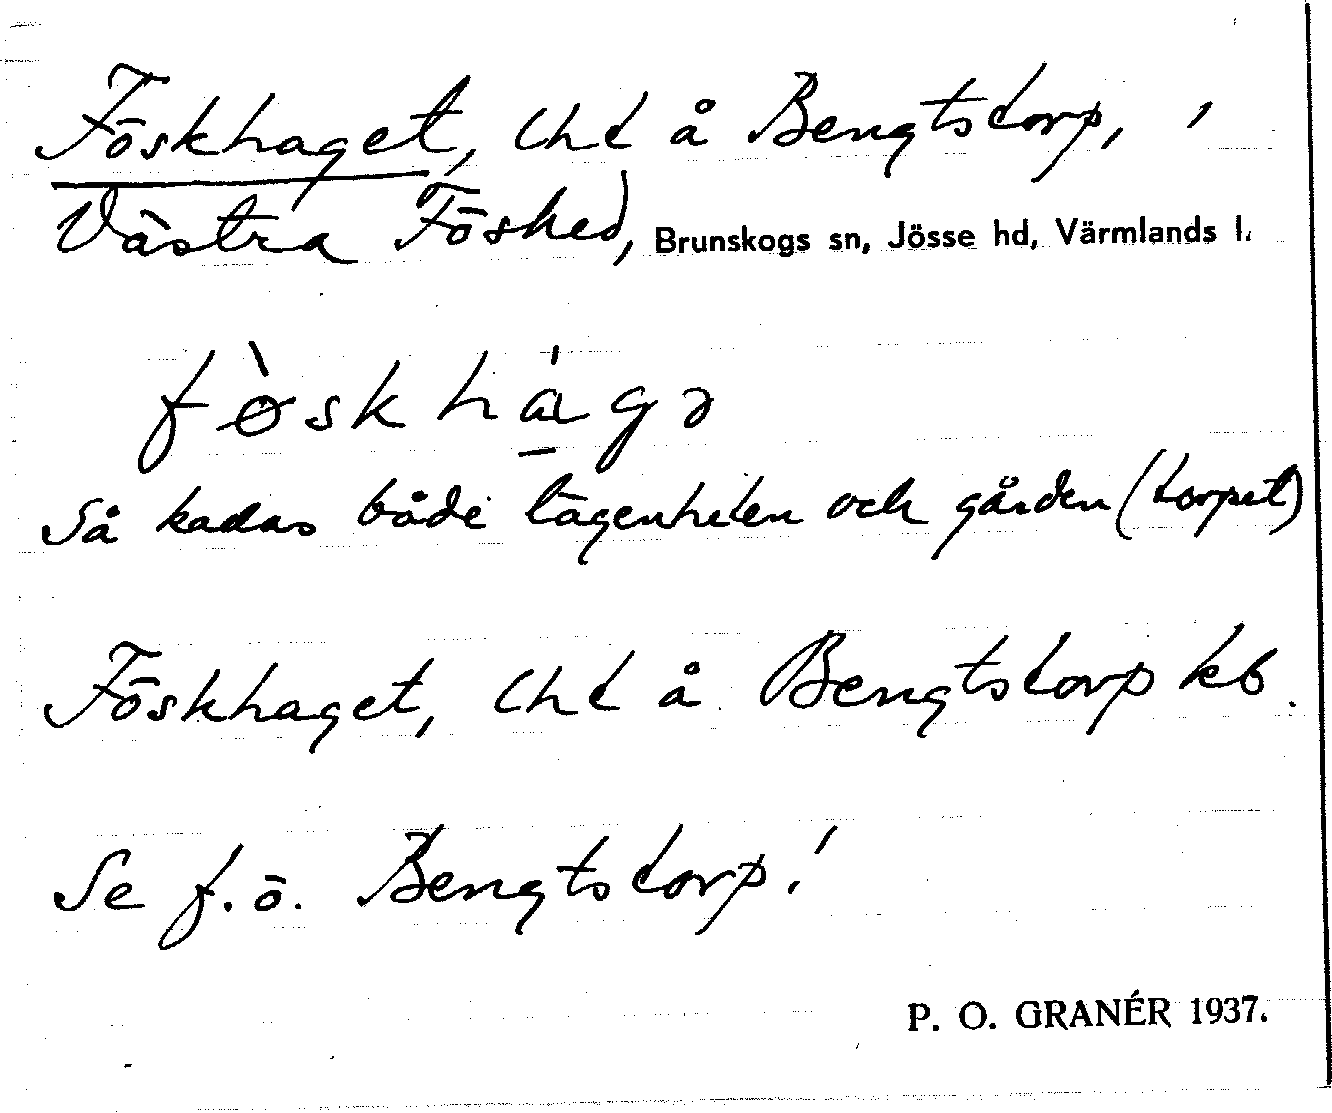 Föskhaget, lht å Bengtstorp,
Västra Fösked, Brunskogs sn, Jösse hd, Värmlands l.
fø̀skhágə
Så kallas både lägenheten och gården (torpet)
Föskhaget, lht å Bengtstorp kb.
Se f.ö. Bengtstorp!
P. O. GRANÉR 1937.